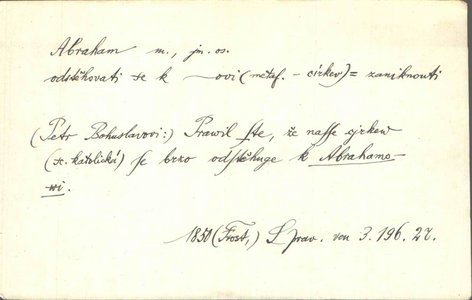 Abraham m., jm. os.
odstěhovati se k —ovi (metaf. - církev) = zaniknouti
(Petr Bohuslavovi:) Prawil ste, že nasse cjrkew
(sc. katolická) se brzo odstěhuge k Abrahamo-
wi.
1850 (Frost,) S prav. ven 3. 196. 27.